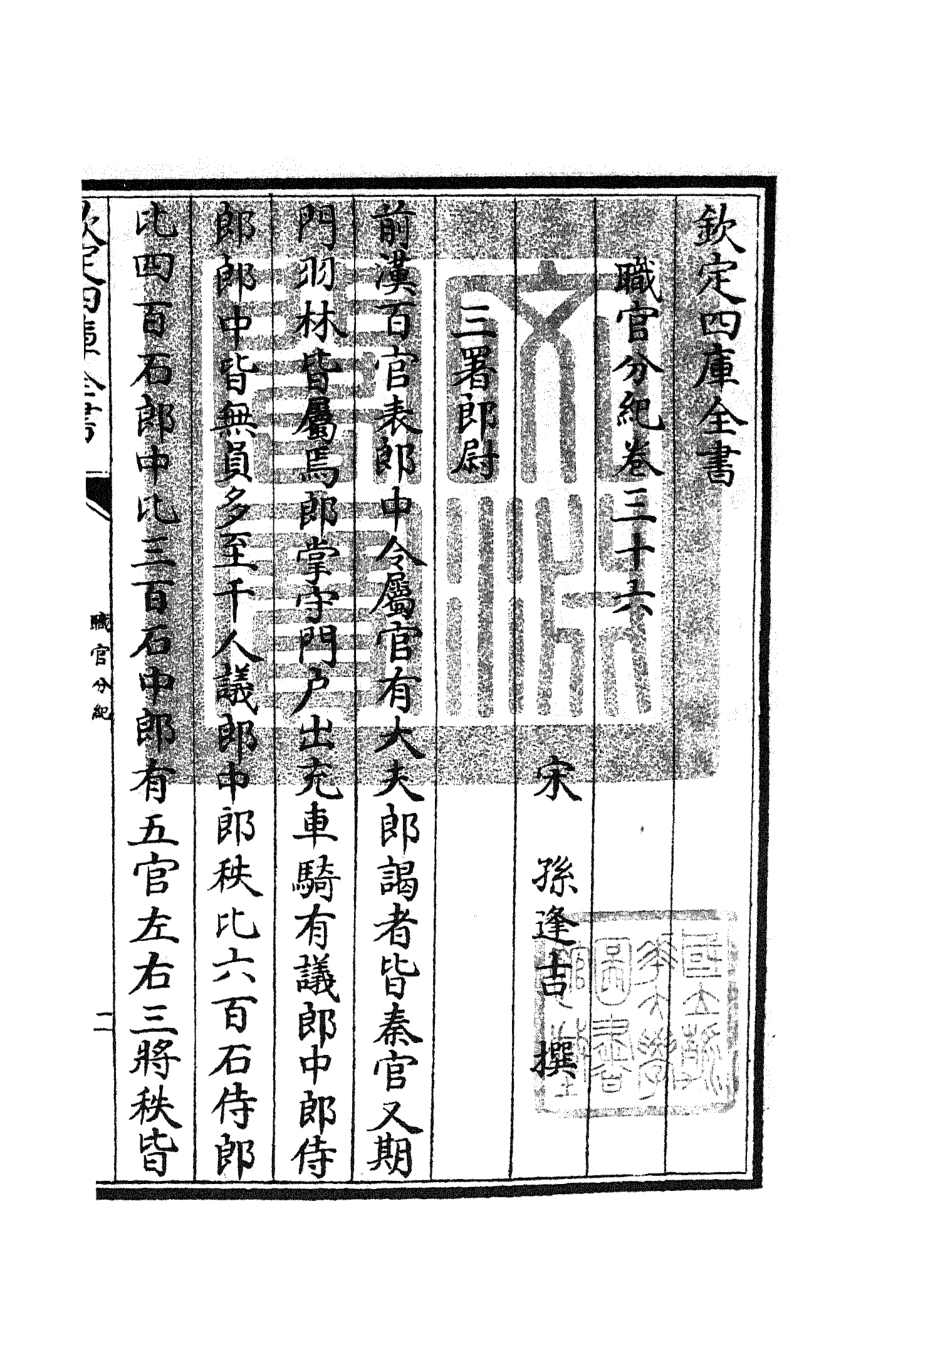 欽定四庫全書
職官分紀卷三十六
宋 孫逢吉 撰
三署郎尉
前漢百官表郎中令屬官有大夫郎謁者皆秦官又期
門羽林皆屬焉郎掌守門户出充車騎有議郎中郎侍
郎郎中皆無員多至千人議郎中郎秩比六百石侍郎
比四百石郎中比三百石中郎有五官左右三將秩皆
欽定四庫全書
職官分紀